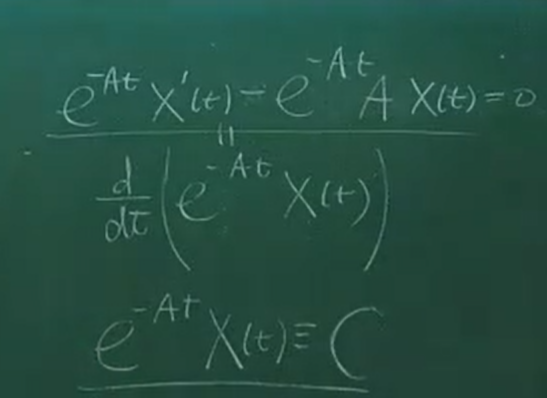 e^{-At} X'(t) - e^{-At} A X(t) = 0
||
d/dt (e^{-At} X(t))
e^{-At} X(t) ≡ C